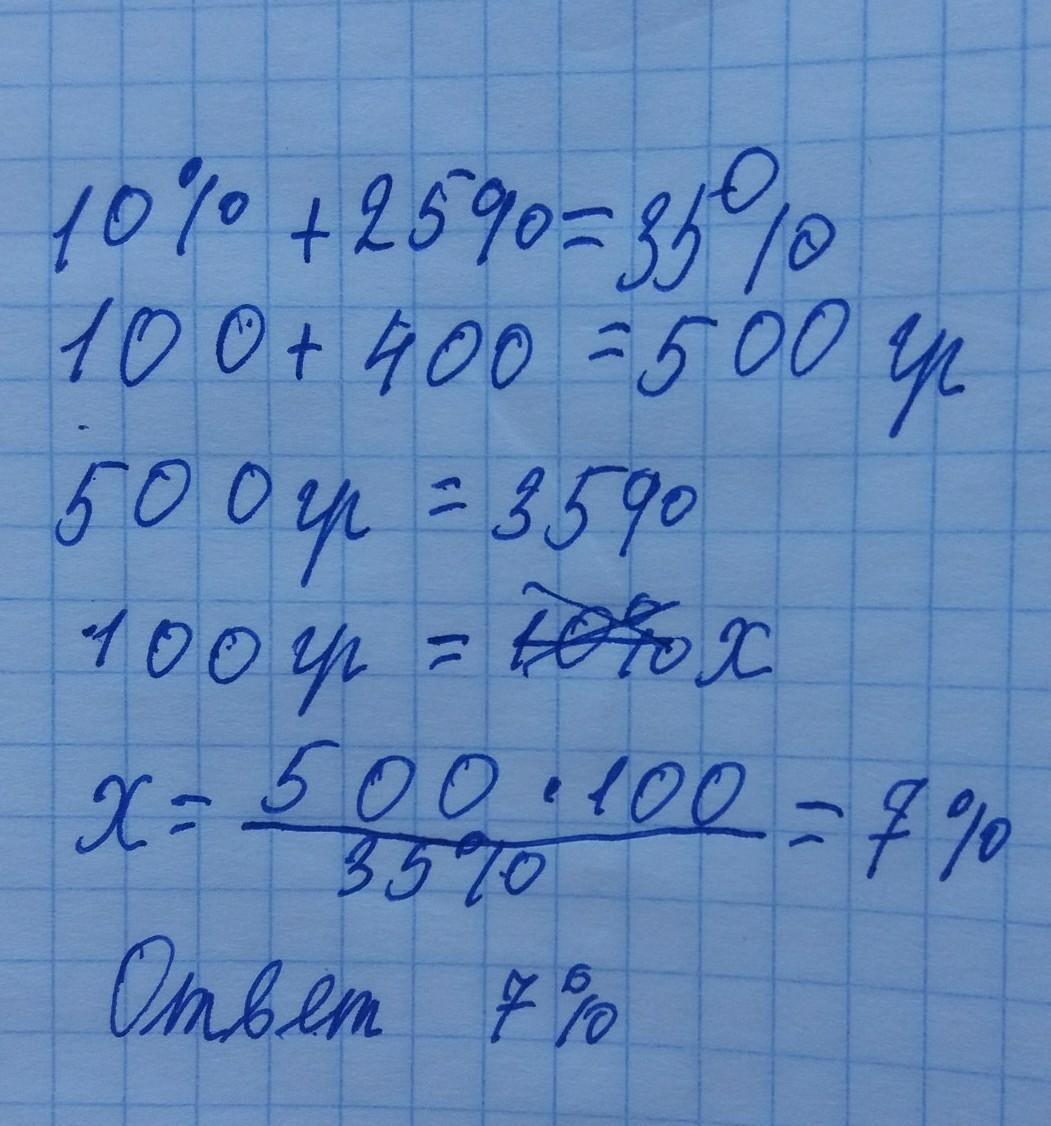 10% + 25% = 35%
100 + 400 = 500 гр
500 гр = 35%
100 гр = 10% х
х = 500 · 100 / 35% = 7%
Ответ 7%